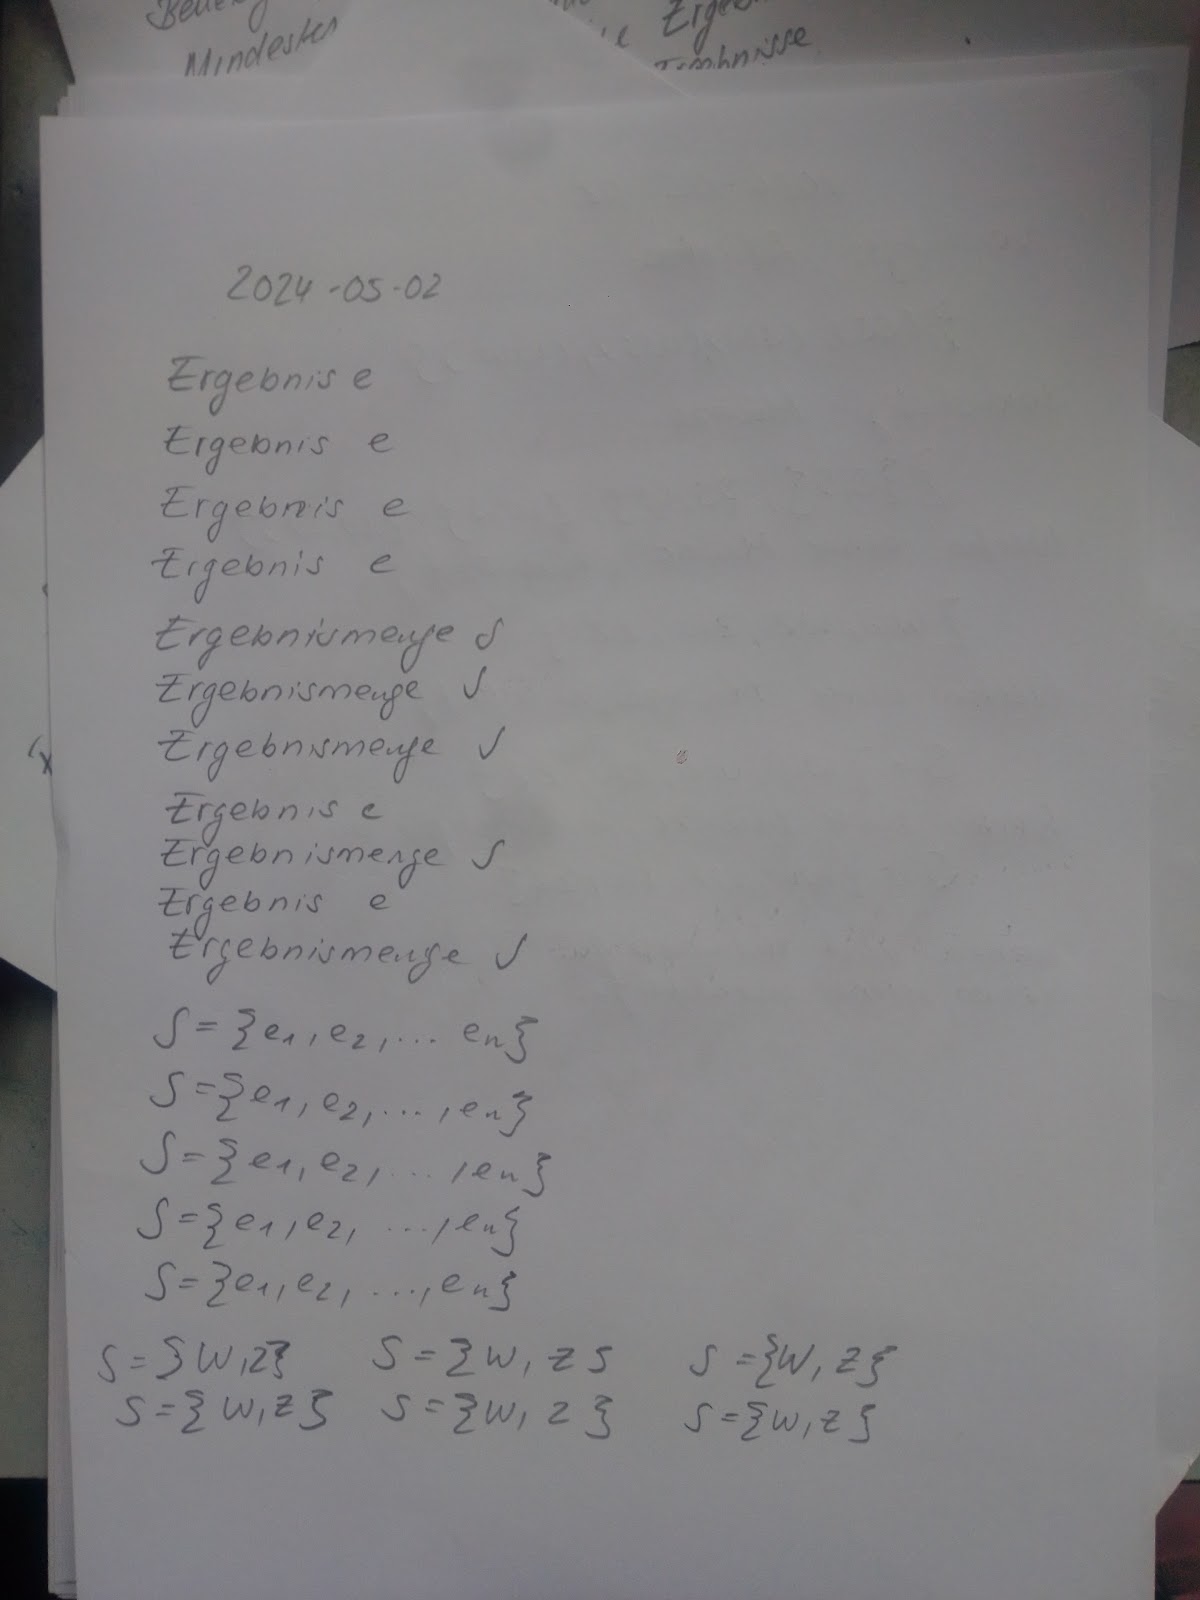 Mindesten
2024-05-02
Ergebnis e
Ergebnis e
Ergebnis e
Ergebnis e
Ergebnismenge S
Ergebnismenge S
Ergebnismenge S
Ergebnis e
Ergebnismenge S
Ergebnis e
Ergebnismenge S
S = {e₁, e₂, ... eₙ}
S = {e₁, e₂, ..., eₙ}
S = {e₁, e₂, ..., eₙ}
S = {e₁, e₂, ..., eₙ}
S = {e₁, e₂, ..., eₙ}
S = {W, Z} S = {W, Z} S = {W, Z}
S = {W, Z} S = {W, Z} S = {W, Z}